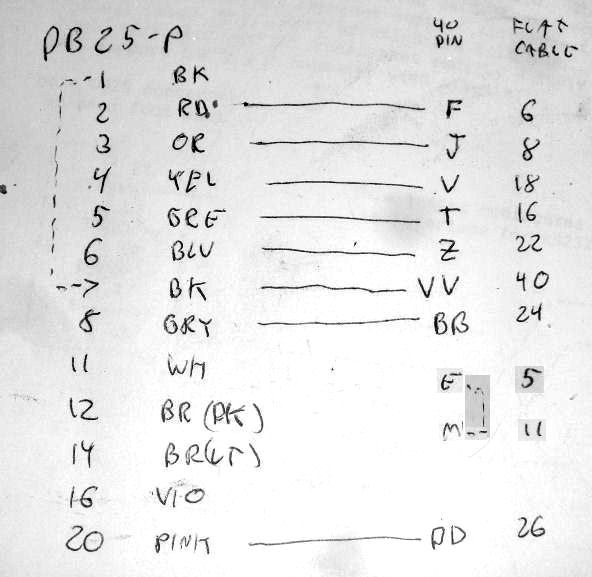 DB25-P 40 PIN FLAT CABLE
1 BK
2 RD F 6
3 OR J 8
4 YEL V 18
5 GRE T 16
6 BLU Z 22
7 BK VV 40
8 GRY BB 24
11 WH
E 5
12 BR (DK)
M 11
14 BR(LT)
16 VIO
20 PINK DD 26